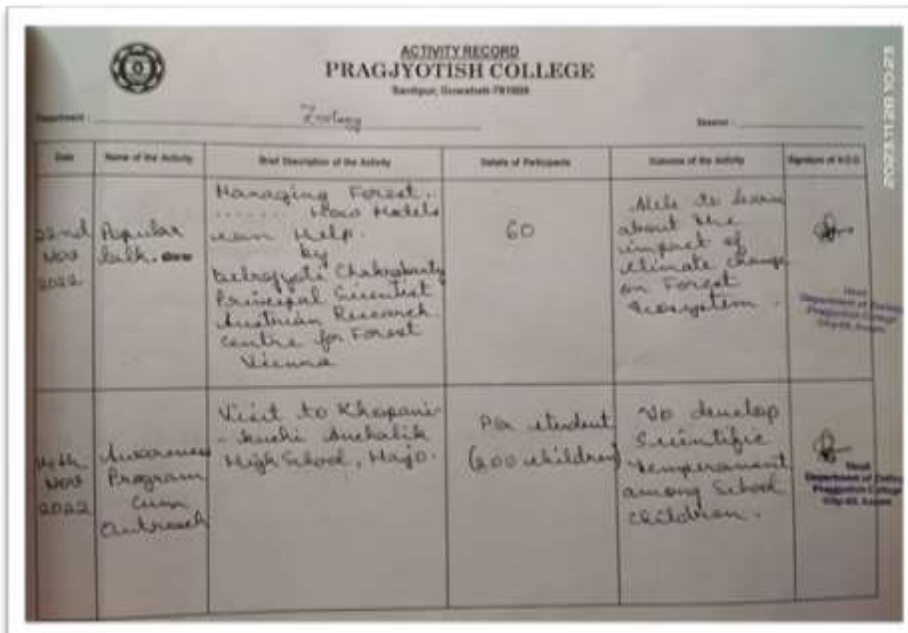 ACTIVITY RECORD
PRAGJYOTISH COLLEGE
Santipur, Guwahati-781009
Department : Zoology
Session :
Date
Name of the Activity
Brief Description of the Activity
Details of Participants
Outcome of the Activity
Signature of H.O.D.
22nd
Nov
2022
Popular
talk.
Managing Forest..
....... How Models
can Help.
by
Debojyoti Chakraborty
Principal Scientist
Austrian Research
Centre for Forest
Vienna
60
Able to learn
about the
impact of
climate change
on Forest
Ecosystem.
Head
Department of Zoology
Pragjyotish College
Nov
2022
Awareness
Program
cum
Outreach
Visit to Khopani-
-kuchi Anchalik
High School, Hajo.
PG student
(200 children)
To develop
Scientific
temperament
among School
children.
Head
Department of Zoology
Pragjyotish College